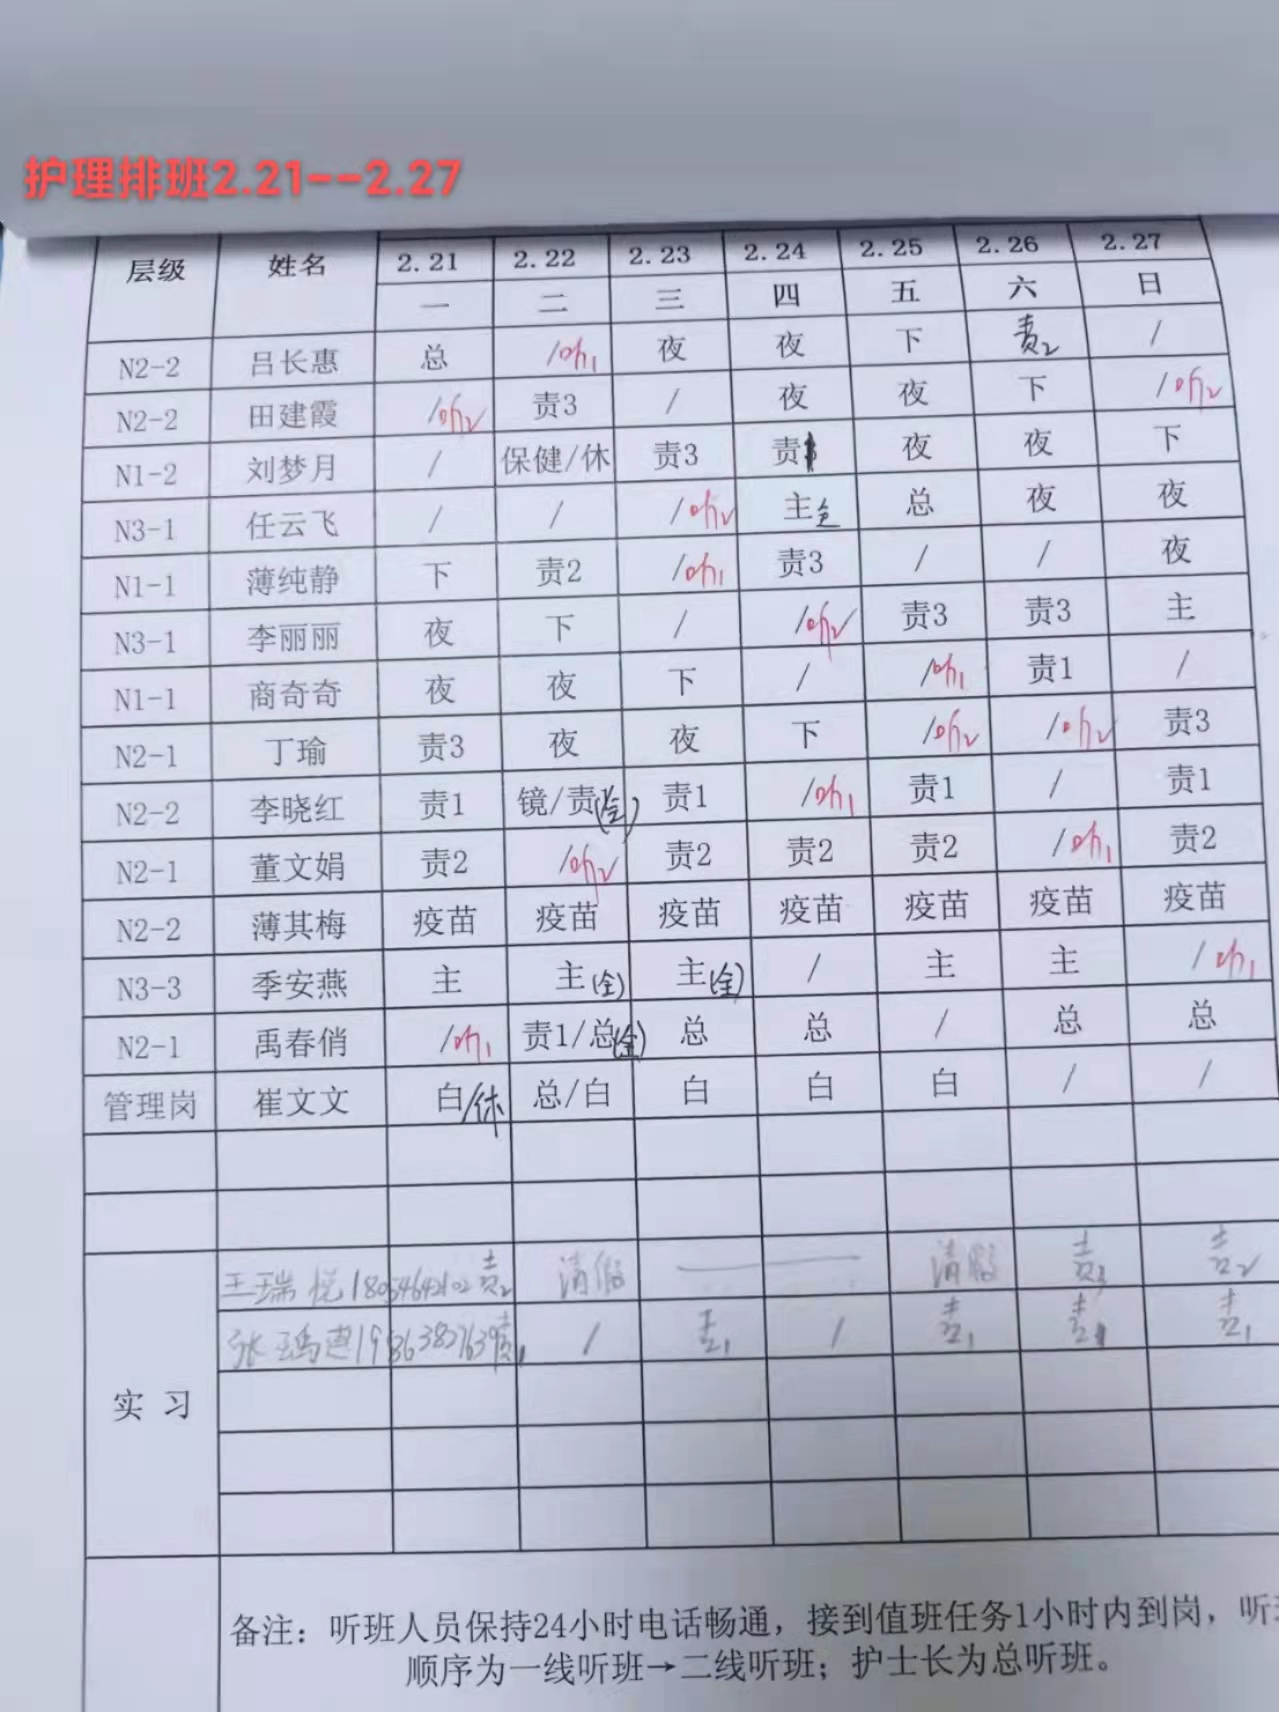 护理排班2.21--2.27
层级 姓名 2.21 2.22 2.23 2.24 2.25 2.26 2.27
一 二 三 四 五 六 日
N2-2 吕长惠 总 /听1 夜 夜 下 责2 /
N2-2 田建霞 /听2 责3 / 夜 夜 下 /听2
N1-2 刘梦月 / 保健/休 责3 责1 夜 夜 下
N3-1 任云飞 / / /听2 主全 总 夜 夜
N1-1 薄纯静 下 责2 /听1 责3 / / 夜
N3-1 李丽丽 夜 下 / /听2 责3 责3 主
N1-1 商奇奇 夜 夜 下 / /听1 责1 /
N2-1 丁瑜 责3 夜 夜 下 /听2 /听2 责3
N2-2 李晓红 责1 镜/责(全) 责1 /听1 责1 / 责1
N2-1 董文娟 责2 /听2 责2 责2 责2 /听1 责2
N2-2 薄其梅 疫苗 疫苗 疫苗 疫苗 疫苗 疫苗 疫苗
N3-3 季安燕 主 主(全) 主(全) / 主 主 /听1
N2-1 禹春俏 /听1 责1/总(全) 总 总 / 总 总
管理岗 崔文文 白/休 总/白 白 白 白 / /
王瑞悦 责2 请假 请假 责3 责2
张 / 责1 / 责1 责1
实习
备注：听班人员保持24小时电话畅通，接到值班任务1小时内到岗，听
顺序为一线听班→二线听班；护士长为总听班。